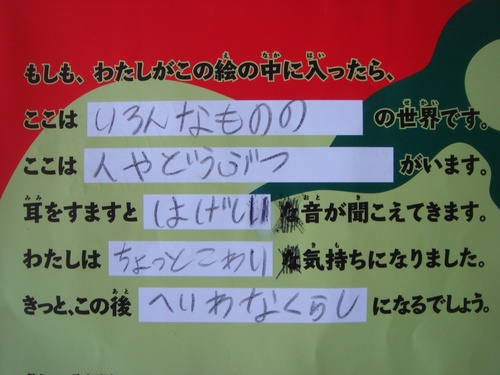 もしも、わたしがこの絵の中に入ったら、
ここは いろんなものの の世界です。
ここは 人やどうぶつ がいます。
耳をすますと はげしい 音が聞こえてきます。
わたしは ちょっとこわい 気持ちになりました。
きっと、この後 へいわなくらし になるでしょう。